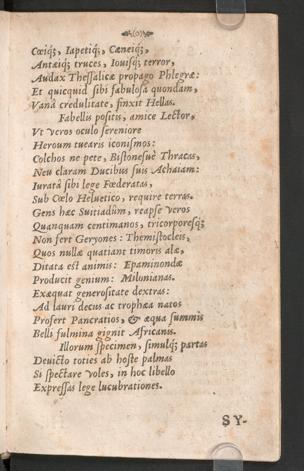 (o)
Cœiq́;, Iapetiq́;, Cæneiq́;,
Antæiq́; truces, Iouisq́; terror,
Audax Thessalicæ propago Phlegræ:
Et quicquid sibi fabulosa quondam,
Vanâ credulitate, finxit Hellas.
Fabellis positis, amice Lector,
Vt veros oculo sereniore
Heroum tuearis iconismos:
Colchos ne pete, Bistonesuè Thracas,
Neu claram Ducibus suis Achaiam:
Iuratâ sibi lege Fœderatas,
Sub Cœlo Helvetico, require terras.
Gens hæc Suitiadûm, reapse veros
Quanquam centimanos, tricorporesq́;
Non fert Geryones: Themistocleis,
Quos nullæ quatiant timoris alæ,
Ditata est animis: Epaminondæ
Producit genium: Milonianas.
Exæquat generositate dextras:
Ad lauri decus ac trophæa natos
Profert Pancratios, & æqua summis
Belli fulmina gignit Africanis.
Illorum specimen, simulq́; partas
Devicto toties ab hoste palmas
Si spectare voles, in hoc libello
Expressas lege lucubrationes.
SY-